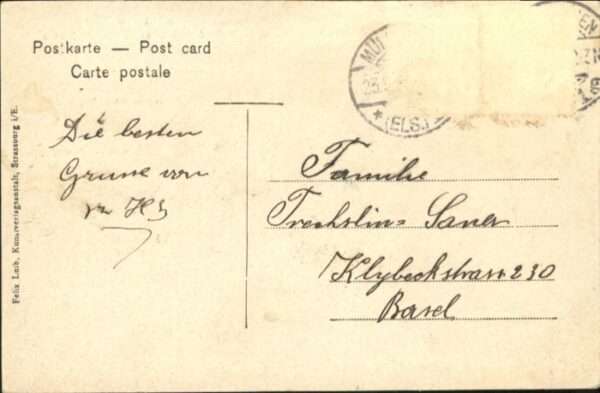 Postkarte — Post card
Carte postale
MÜ
(ELS.)
Die besten
Grüsse von
Familie
Trechslin-Saner
Klybeckstrasse 230
Basel
Felix Luib, Kunstverlagsanstalt, Strassburg i/E.